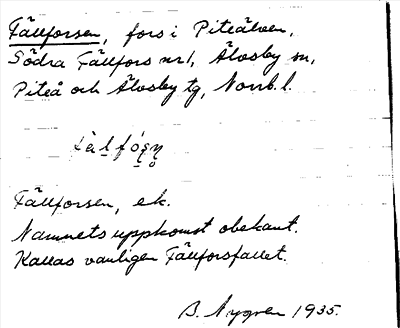 Fällforsen, fors i Piteälven,
Södra Fällfors nr 1, Älvsby sn,
Piteå och Älvsby tg, Norrb. l.
Fällforsen, ek.
Namnets uppkomst obekant.
Kallas vanligen Fällforsfallet.
B. Nygren 1935.